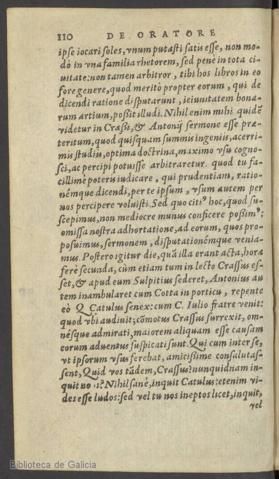 110 DE ORATORE
ipse iocari soles, vnum putasti satis esse, non mo-
dò in vna familia rhetorem, sed penè in tota ci-
uitate: non tamen arbitror, tibi hos libros in eo
fore genere, quod meritò propter eorum, qui de
dicendi ratione disputarunt, ieiunitatem bona-
rum artium, possit illudi. Nihil enim mihi quidē
videtur in Crassi, & Antonij sermone esse præ-
teritum, quod quisquam summis ingenijs, acerri-
mis studijs, optima doctrina, maximo vsu cogno-
sci, ac percipi potuisse arbitraretur. quod tu fa-
cillimè poteris iudicare, qui prudentiam, ratio-
némque dicendi, per te ipsum, vsum autem per
nos percipere voluisti. Sed quo citiꝰ hoc, quod su-
scepimus, non mediocre munus conficere possimꝰ:
omissa nostra adhortatione, ad eorum, quos pro-
posuimus, sermonem, disputationémque venia-
mus. Postero igitur die, quā illa erant acta, hora
ferè secunda, cùm etiam tum in lecto Crassus es-
set, & apud eum Sulpitius sederet, Antonius au
tem inambularet cum Cotta in porticu, repentè
eò Q. Catulus senex: cum C. Iulio fratre venit:
quod vbi audiuit; cōmotus Crassus surrexit, om-
nésque admirati, maiorem aliquam esse causam
eorum aduentus suspicati sunt. Qui cum inter se,
vt ipsorum vsus ferebat, amicissimè consalutas-
sent, Quid vos tādem, Crassus? nunquidnam in-
quit Nihil sanè, inquit Catulus: etenim vi-
des esse ludos: sed vel tu nos ineptos licet, inquit,
vel
Biblioteca de Galicia